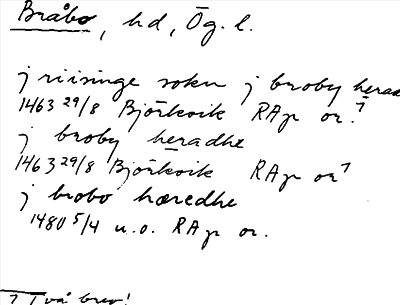 Bråbo, hd, Ög. l.
j riisinge sokn j broby herad
1463 29/8 Björkvik RAp or. 7
j broby heradhe
1463 29/8 Björkvik RAp or 7
j brobo hæredhe
1480 5/4 u.o. RAp or.
7 Två brev!